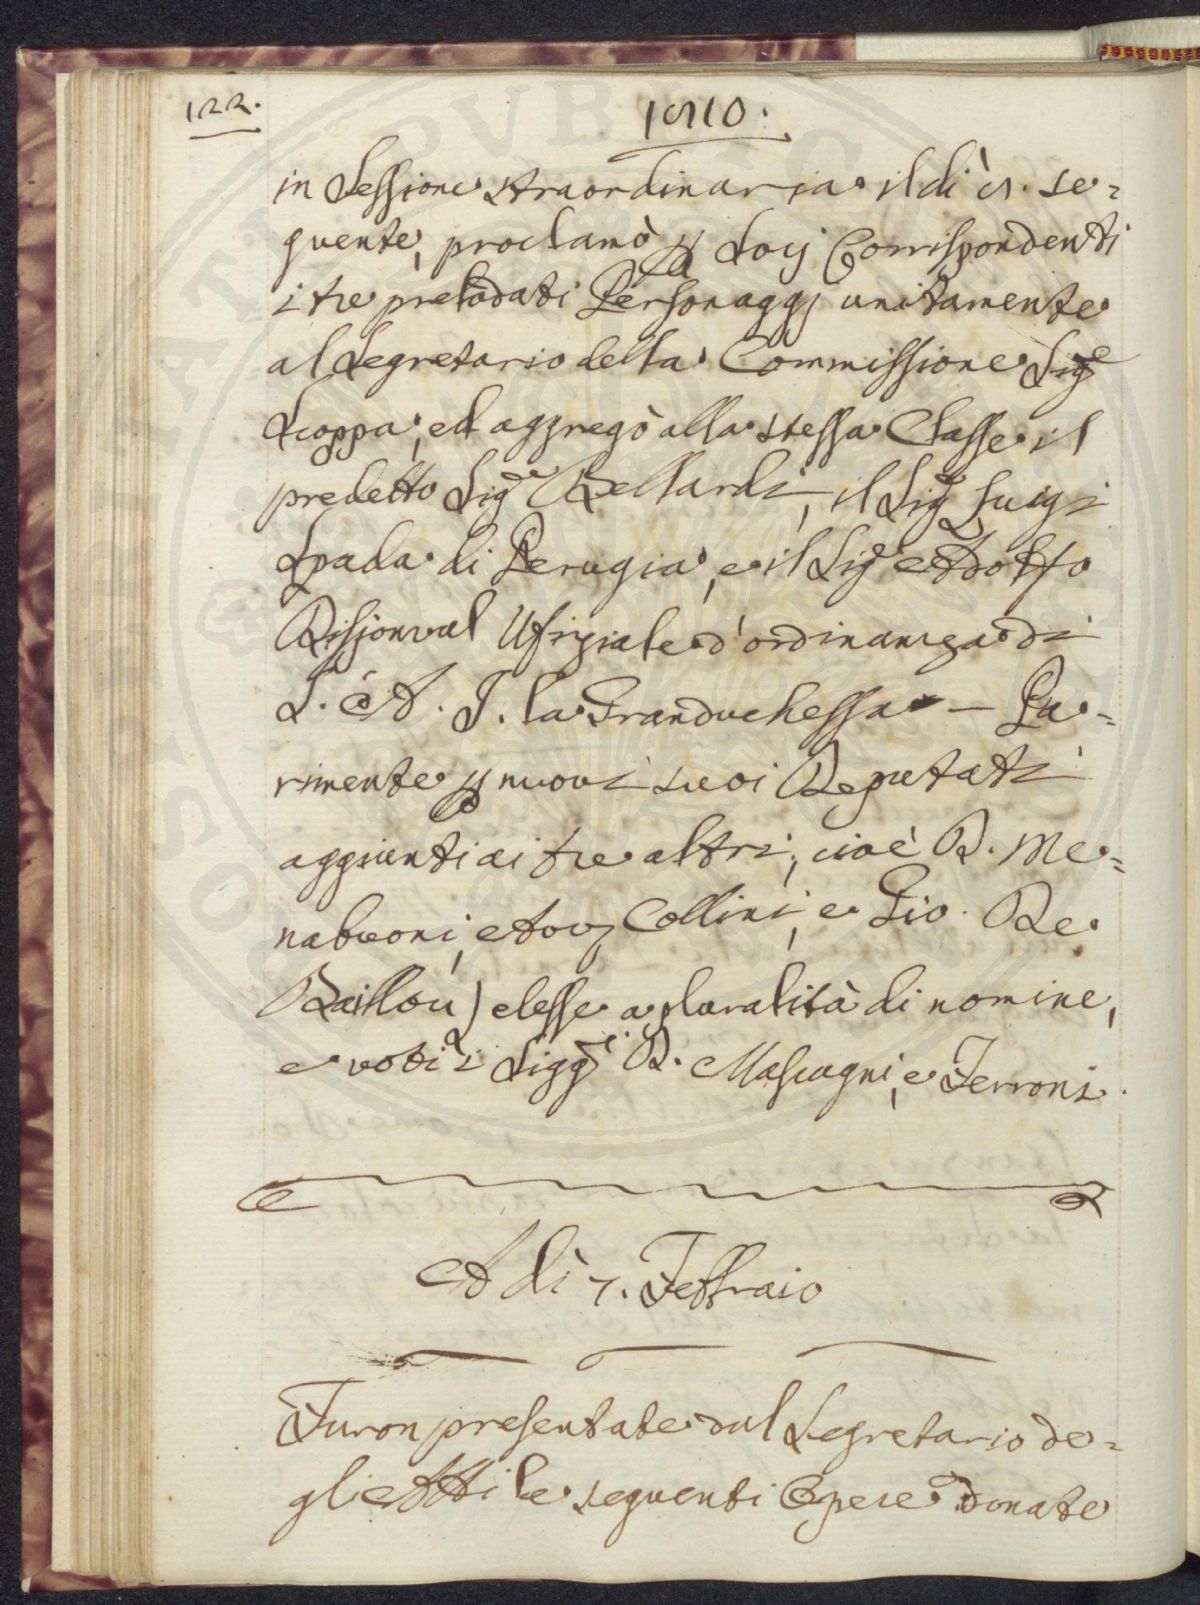 122.
1810.
in Sessione straordinaria il dì 21. se=
guente, proclamò p Socj Corrispondenti
i tre prelodati Personaggj unitamente
al Segretario della Commissione Sigre
Scoppa; ed aggregò alla stessa Classe il
predetto Sigre Bellardi, il Sigre Luigi
Spada di Perugia, e il Sigre Adolfo
Ufiziale d'ordinanza di
S. A. I. la Granduchessa — Pa=
rimente p nuovi suoi Deputati
aggiunti ai tre altri, cioè D. Me=
nabuoni, Avv. Collini, e Gio. De
Baillou) elesse a pluralità di nomine,
e voti i Sigg.i D. Mascagni, e Ferroni.
A dì 7. Febbraio
Furon presentate dal Segretario de=
gli Atti le seguenti Opere donate